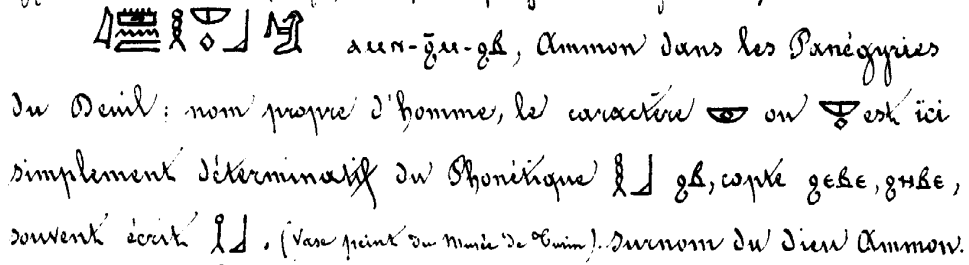 ⲁⲙⲛ-ϩ̄ⲙ-ϩⲃ, Ammon dans les Panégyries
du Deuil : nom propre d'homme, le caractère 𓎱 ou est ici
simplement déterminatif du Phonétique 𓎛𓃀 ϩⲃ, copte ϩⲉⲃⲉ, ϩⲏⲃⲉ,
souvent écrit 𓎛𓃀. (Vase peint du Musée de Turin). Surnom du dieu Ammon.